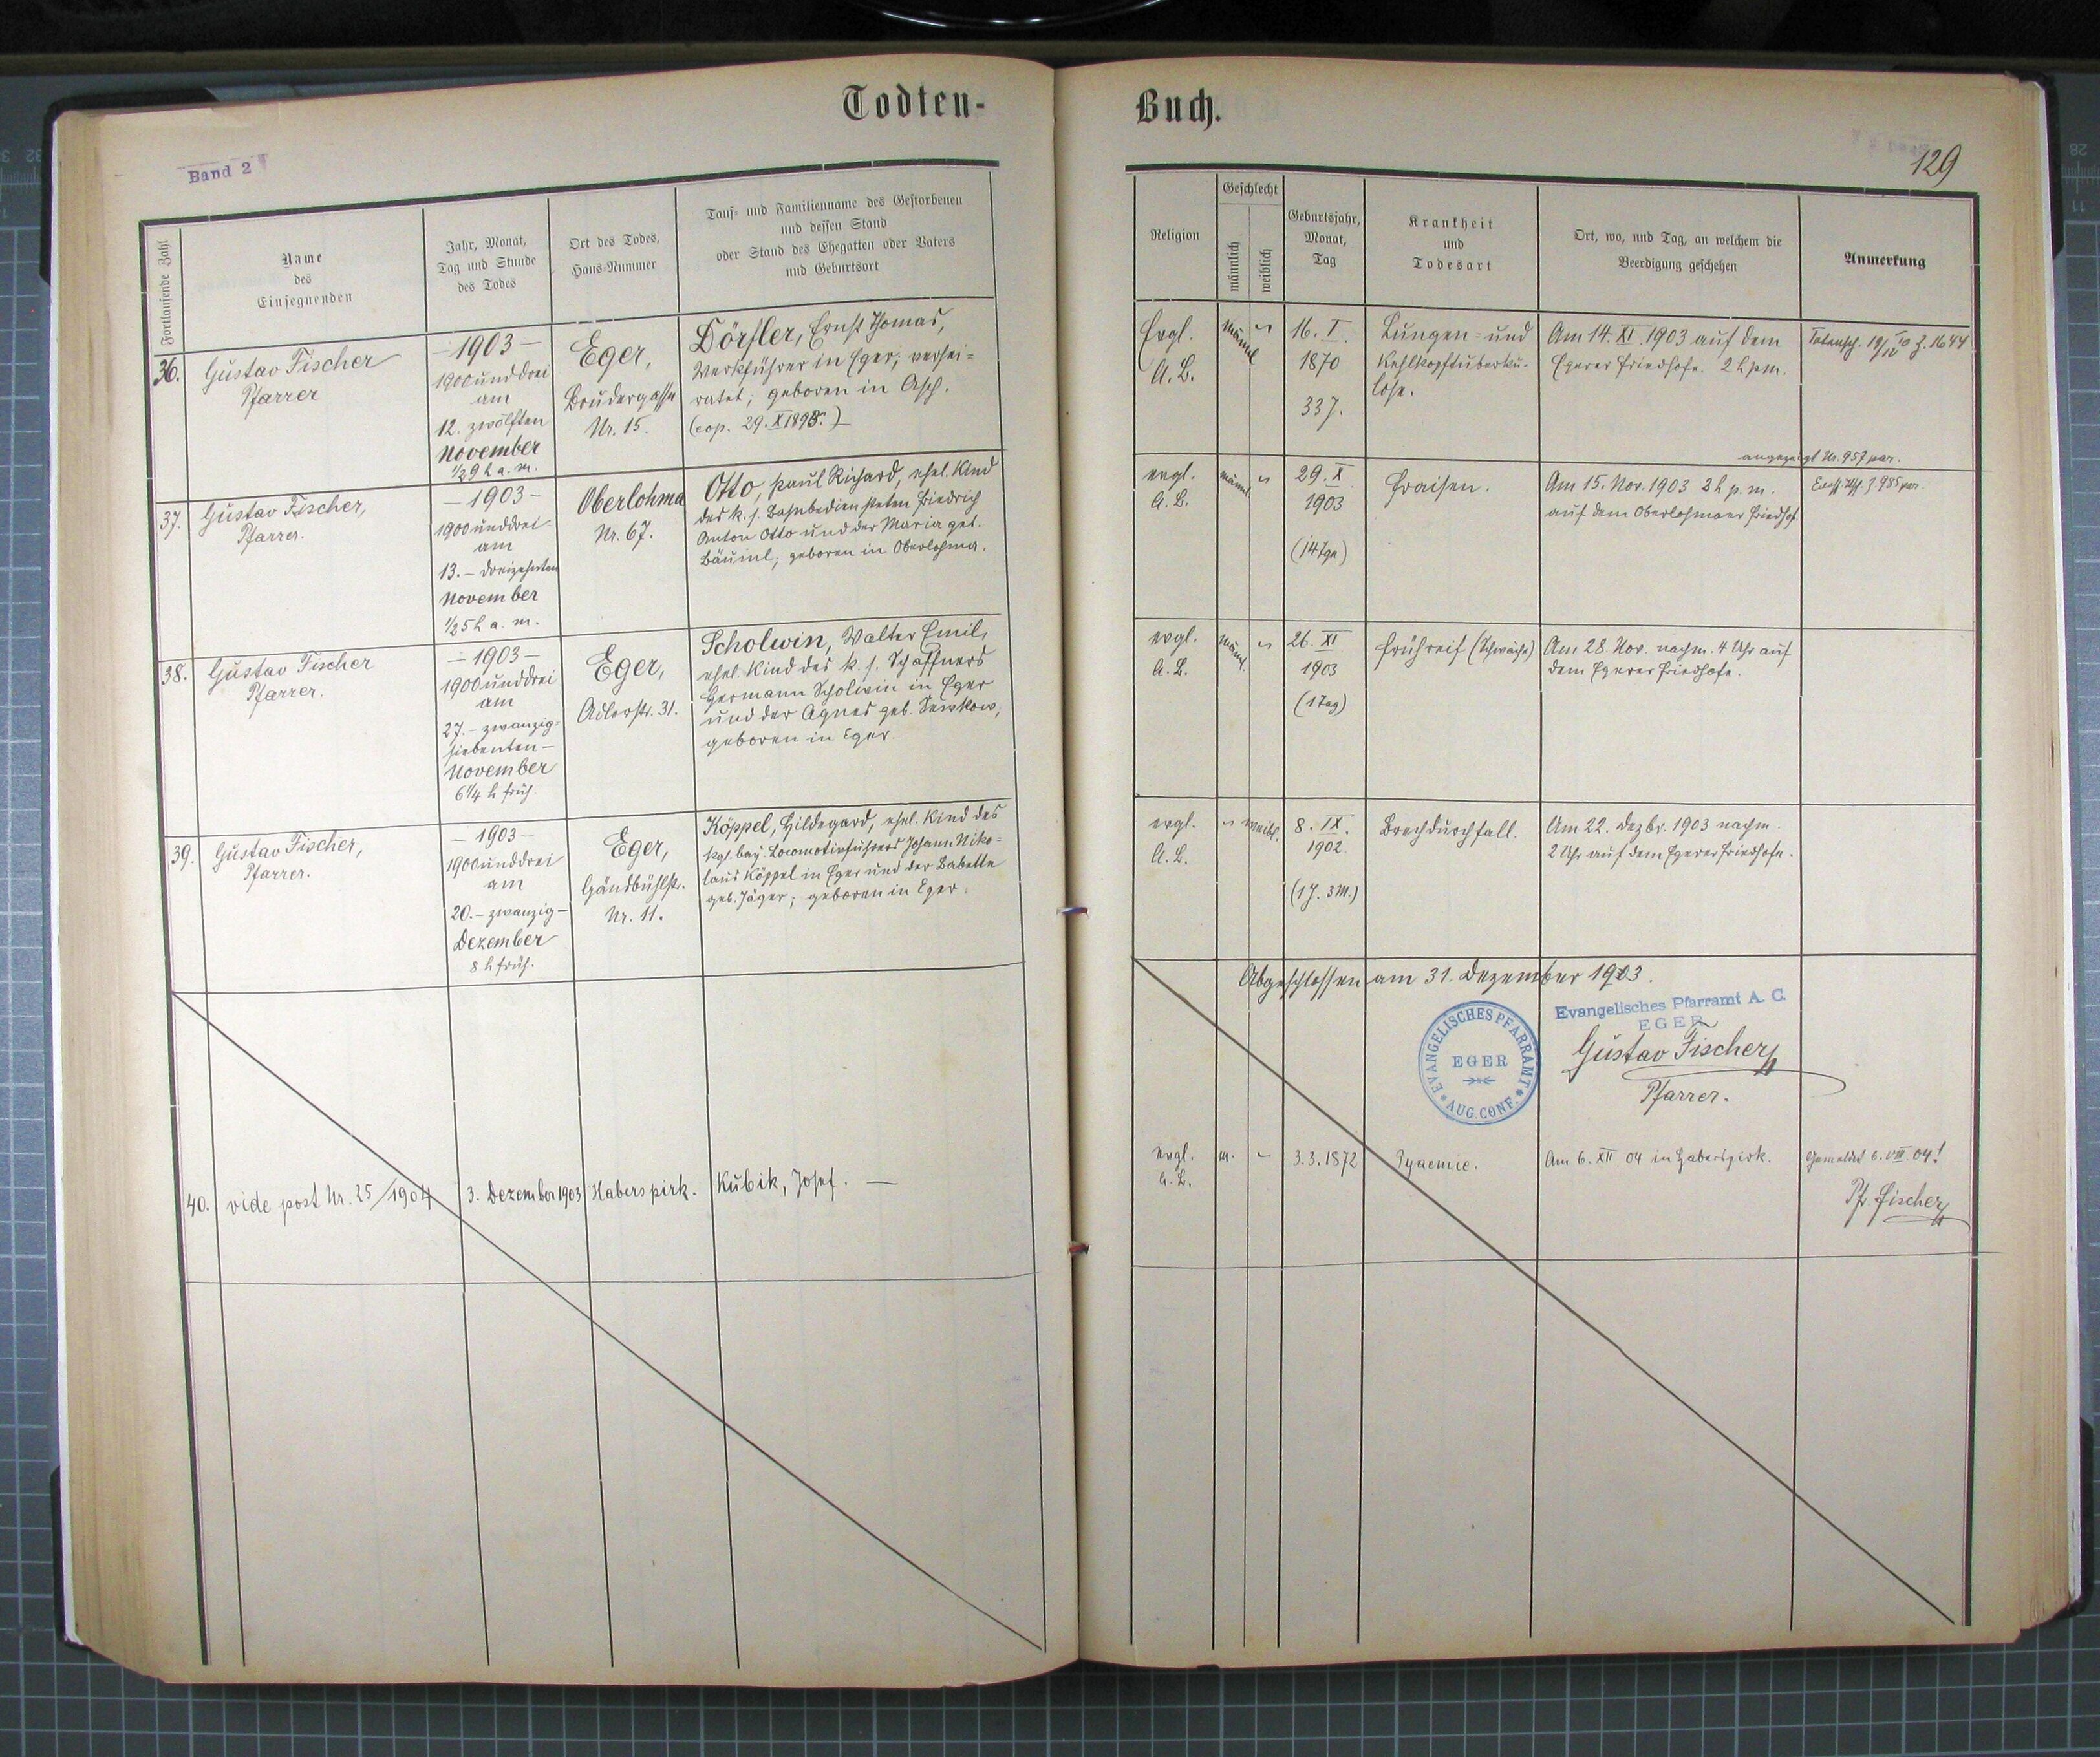 Todten-
Buch.
Band 2
129
Fortlaufende Zahl
Name
des
Einsegnenden
Jahr, Monat,
Tag und Stunde
des Todes
Ort des Todes,
Haus-Nummer
Tauf- und Familienname des Gestorbenen
und dessen Stand
oder Stand des Ehegatten oder Vaters
und Geburtsort
Religion
Geschlecht
männlich
weiblich
Geburtsjahr,
Monat,
Tag
Krankheit
und
Todesart
Ort, wo, und Tag, an welchem die
Beerdigung geschehen
Anmerkung
36.
Gustav Fischer
Pfarrer
– 1903 –
1900 und drei
am
12. zwölften
November
½9 h a. m.
Eger,
Brudergasse
Nr. 15.
Dörfler, Ernst Thomas,
Werkführer in Eger; verhei-
ratet; geboren in Asch.
(cop. 29. X 1895.)
Evgl.
A. B.
männl
"
16. I.
1870
33 J.
Lungen- und
Kehlkopftuberku-
lose.
Am 14. XI. 1903 auf dem
Egerer Friedhofe. 2 h pm.
Z. 1644
37.
Gustav Fischer,
Pfarrer.
– 1903 –
1900 und drei
am
13. – dreizehnten
November
½5 h a. m.
Oberlohma
Nr. 67.
Otto, Paul Richard, ehel. Kind
des k. s. Bahnbediensteten Friedrich
Anton Otto und der Maria geb.
Bäuml, geboren in Oberlohma.
evgl.
A. B.
männl.
"
29. X
1903
(14 Tge)
Fraisen.
angezeigt Nr. 957 par.
Am 15. Nov. 1903 2 h p. m.
auf dem Oberlohmaer Friedhof.
985 par.
38.
Gustav Fischer
Pfarrer.
– 1903 –
1900 und drei
am
27. – zwanzig-
siebenten –
November
6¼ h früh.
Eger,
Adlerstr. 31.
Scholwin, Walter Emil,
ehel. Kind des k. s. Schaffners
Hermann Scholwin in Eger
und der Agnes geb.
geboren in Eger.
evgl.
A. B.
männl.
"
26. XI
1903
(1 Tag)
Frühreif (Schwäche)
Am 28. Nov. nachm. 4 Uhr auf
dem Egerer Friedhofe.
39.
Gustav Fischer,
Pfarrer.
– 1903 –
1900 und drei
am
20. – zwanzig –
Dezember
8 h früh.
Eger,
Nr. 11.
Köppel, Hildegard, ehel. Kind des
kgl. bay. Locomotivführers Johann Niko-
laus Köppel in Eger und der Babette
geb. Jäger; geboren in Eger.
evgl.
A. B.
"
weibl.
8. IX.
1902.
(1 J. 3 M.)
Brechdurchfall.
Am 22. Dezbr. 1903 nachm.
2 Uhr auf dem Egerer Friedhofe.
Abgeschlossen am 31. Dezember 1903.
EVANGELISCHES PFARRAMT
EGER
AUG. CONF.
Evangelisches Pfarramt A. C.
EGER
Gustav Fischer
Pfarrer.
40.
vide post Nr. 25/1904
3. Dezember 1903
Haberspirk.
Kubik, Josef. –
evgl.
A. B.
m.
"
3.3.1872
Pyaemie.
Am 6. XII 04 in Haberspirk.
Gemeldet 6. VIII. 04!
Pf. Fischer